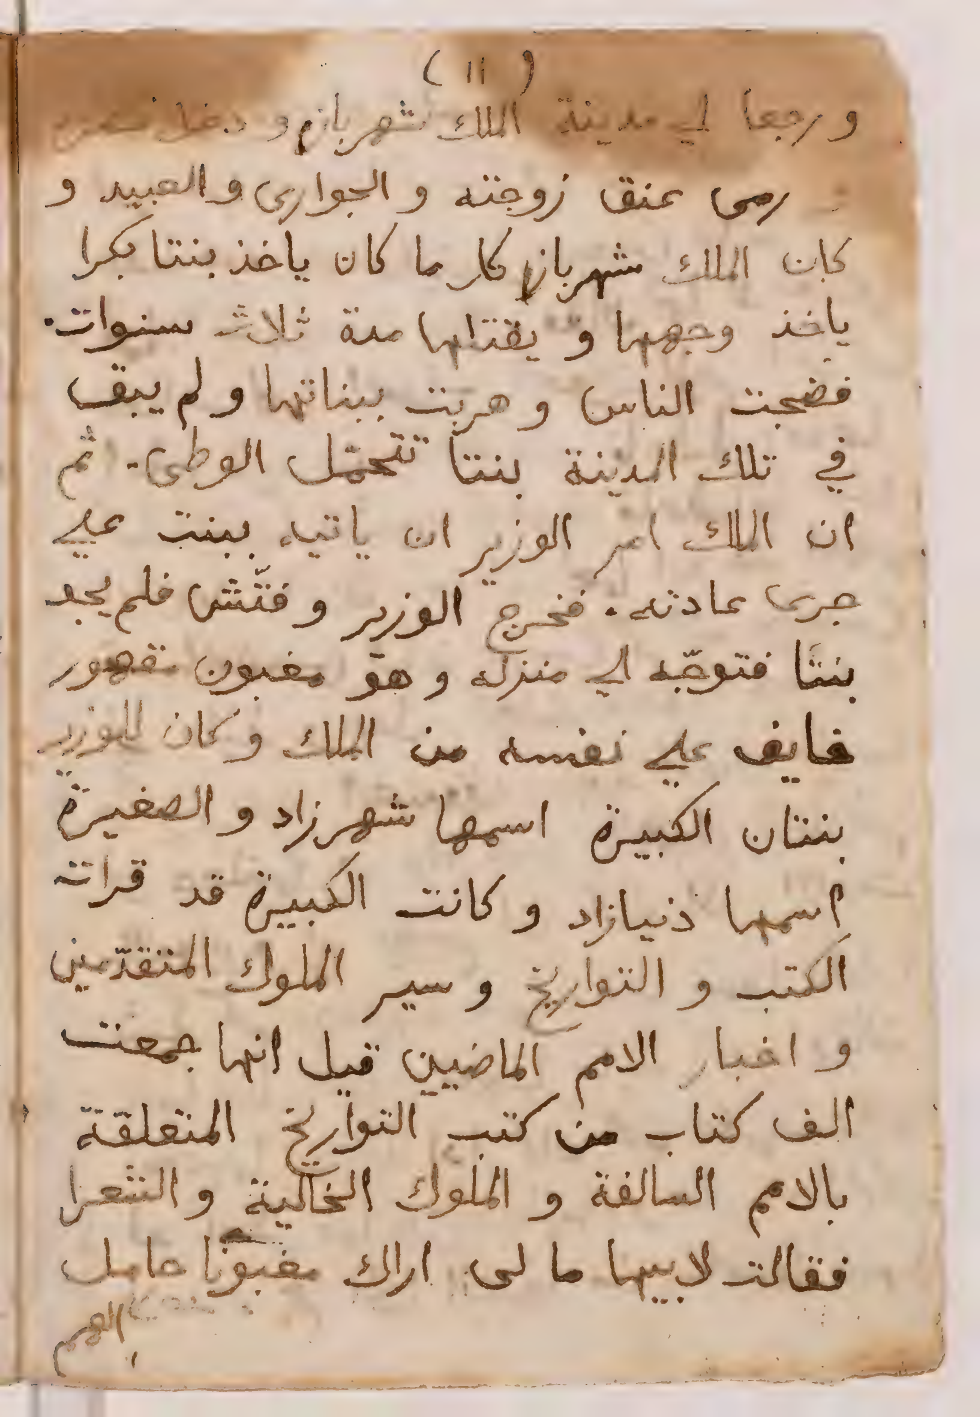 (١١)
و رجعا لي مدينة الملك شهرباز و دخل
رمى عنق زوجته و الجوارى و العبيد و
كان الملك شهرباز كل ما كان ياخذ بنتا بكرا
ياخذ وجهها و يقتلها مدة ثلاث سنوات.
فضجت الناس و هربت ببناتها و لم يبق
في تلك المدينة بنتا تتحمّل الوطى. ثم
ان الملك امر الوزير ان ياتيه ببنت علي
جرى عادته. فخرج الوزير و فتّش فلم يجد
بنتًا فتوجّه الي منزله و هو مغبون مقهور
خايف علي نفسه من الملك و كان للوزير
بنتان الكبيرة اسمها شهرزاد و الصغيرة
اسمها دنيازاد و كانت الكبيرة قد قرات
الكتب و التواريخ و سير الملوك المتقدّمين
و اخبار الامم الماضيين قيل انها جمعت
الف كتاب من كتب التواريخ المتعلقة
بالامم السالفة و الملوك الخالية و الشعرا
فقالت لابيها ما لى اراك مغبونًا حامل
الهم